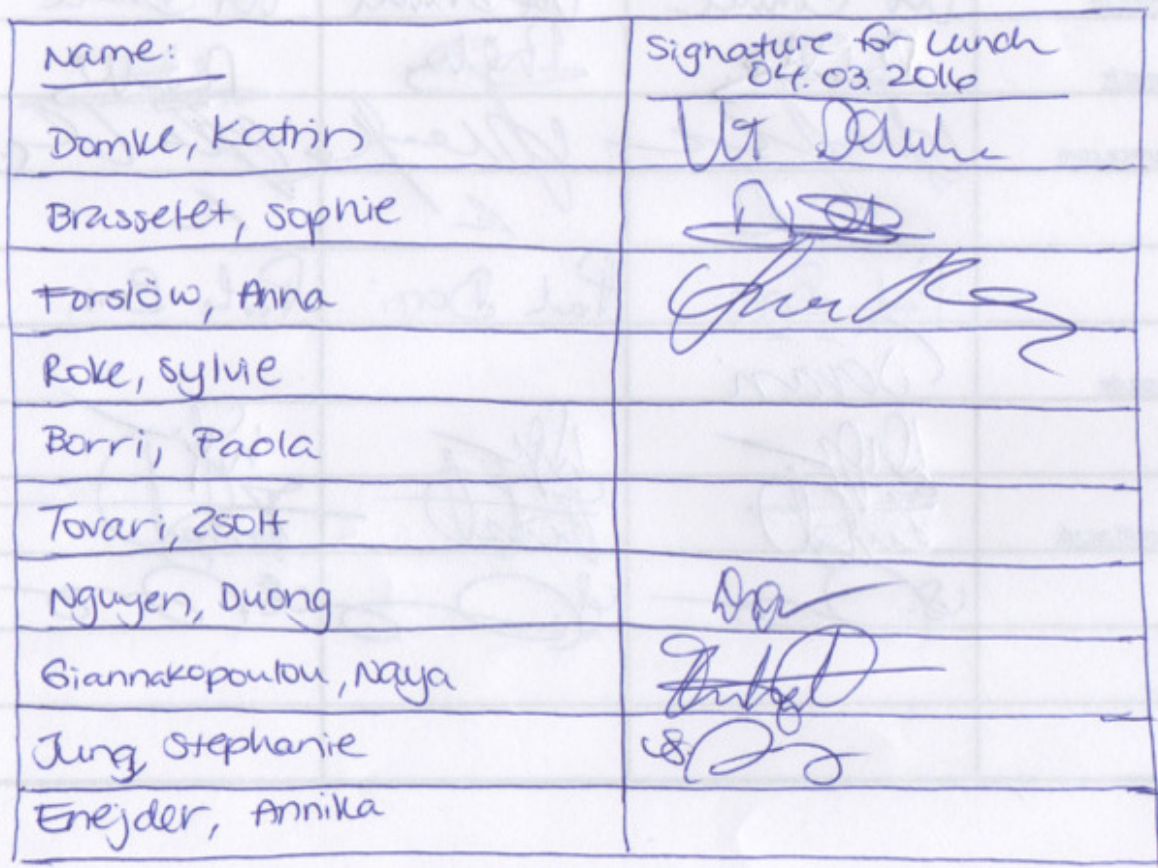 Name:
Signature for Lunch
04.03.2016
Domke, Katrin
Brasselet, Sophie
Forslöw, Anna
Roke, Sylvie
Borri, Paola
Tovari, Zsolt
Nguyen, Duong
Giannakopoulou, Naya
Jung, Stephanie
Enejder, Annika